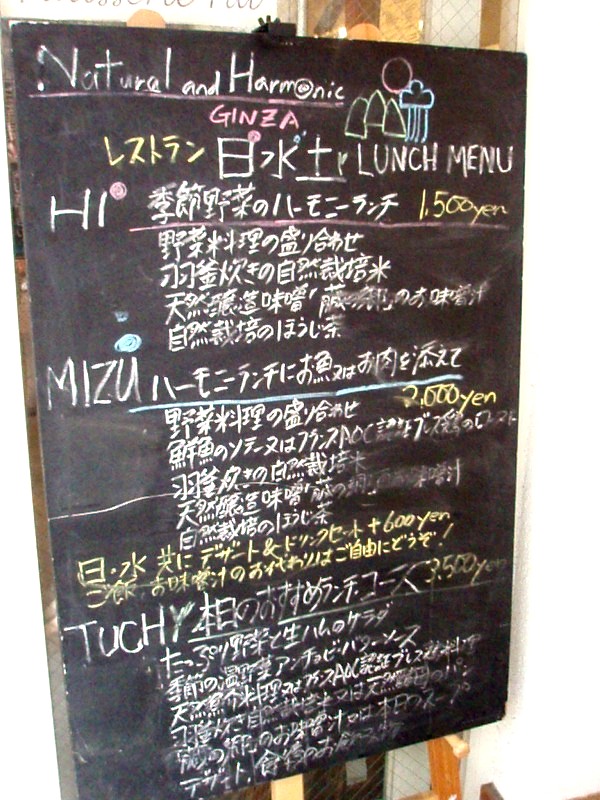 Natural and Harmonic
GINZA
レストラン 日・水・土 LUNCH MENU
HI 季節野菜のハーモニーランチ 1,500yen
野菜料理の盛り合わせ
羽釜炊きの自然栽培米
天然醸造味噌「蔵の郷」のお味噌汁
自然栽培のほうじ茶
MIZU ハーモニーランチにお魚又はお肉を添えて
2,000yen
野菜料理の盛り合わせ
鮮魚のソテー又はフランスAOC認証ブレス鶏のロースト
羽釜炊きの自然栽培米
天然醸造味噌「蔵の郷」のお味噌汁
自然栽培のほうじ茶
日・水 共に デザート&ドリンクセット +600yen
ご飯・お味噌汁のおかわりはご自由にどうぞ!
TUCHY 本日のおすすめランチ・コース 3,500yen
たっぷり野菜と生ハムのサラダ
季節の温野菜 アンチョビ・バターソース
天然魚介料理又はフランスAOC認証ブレス鶏料理
羽釜炊き自然栽培米又は天然酵母のパン
のお味噌汁又は本日のスープ
デザート